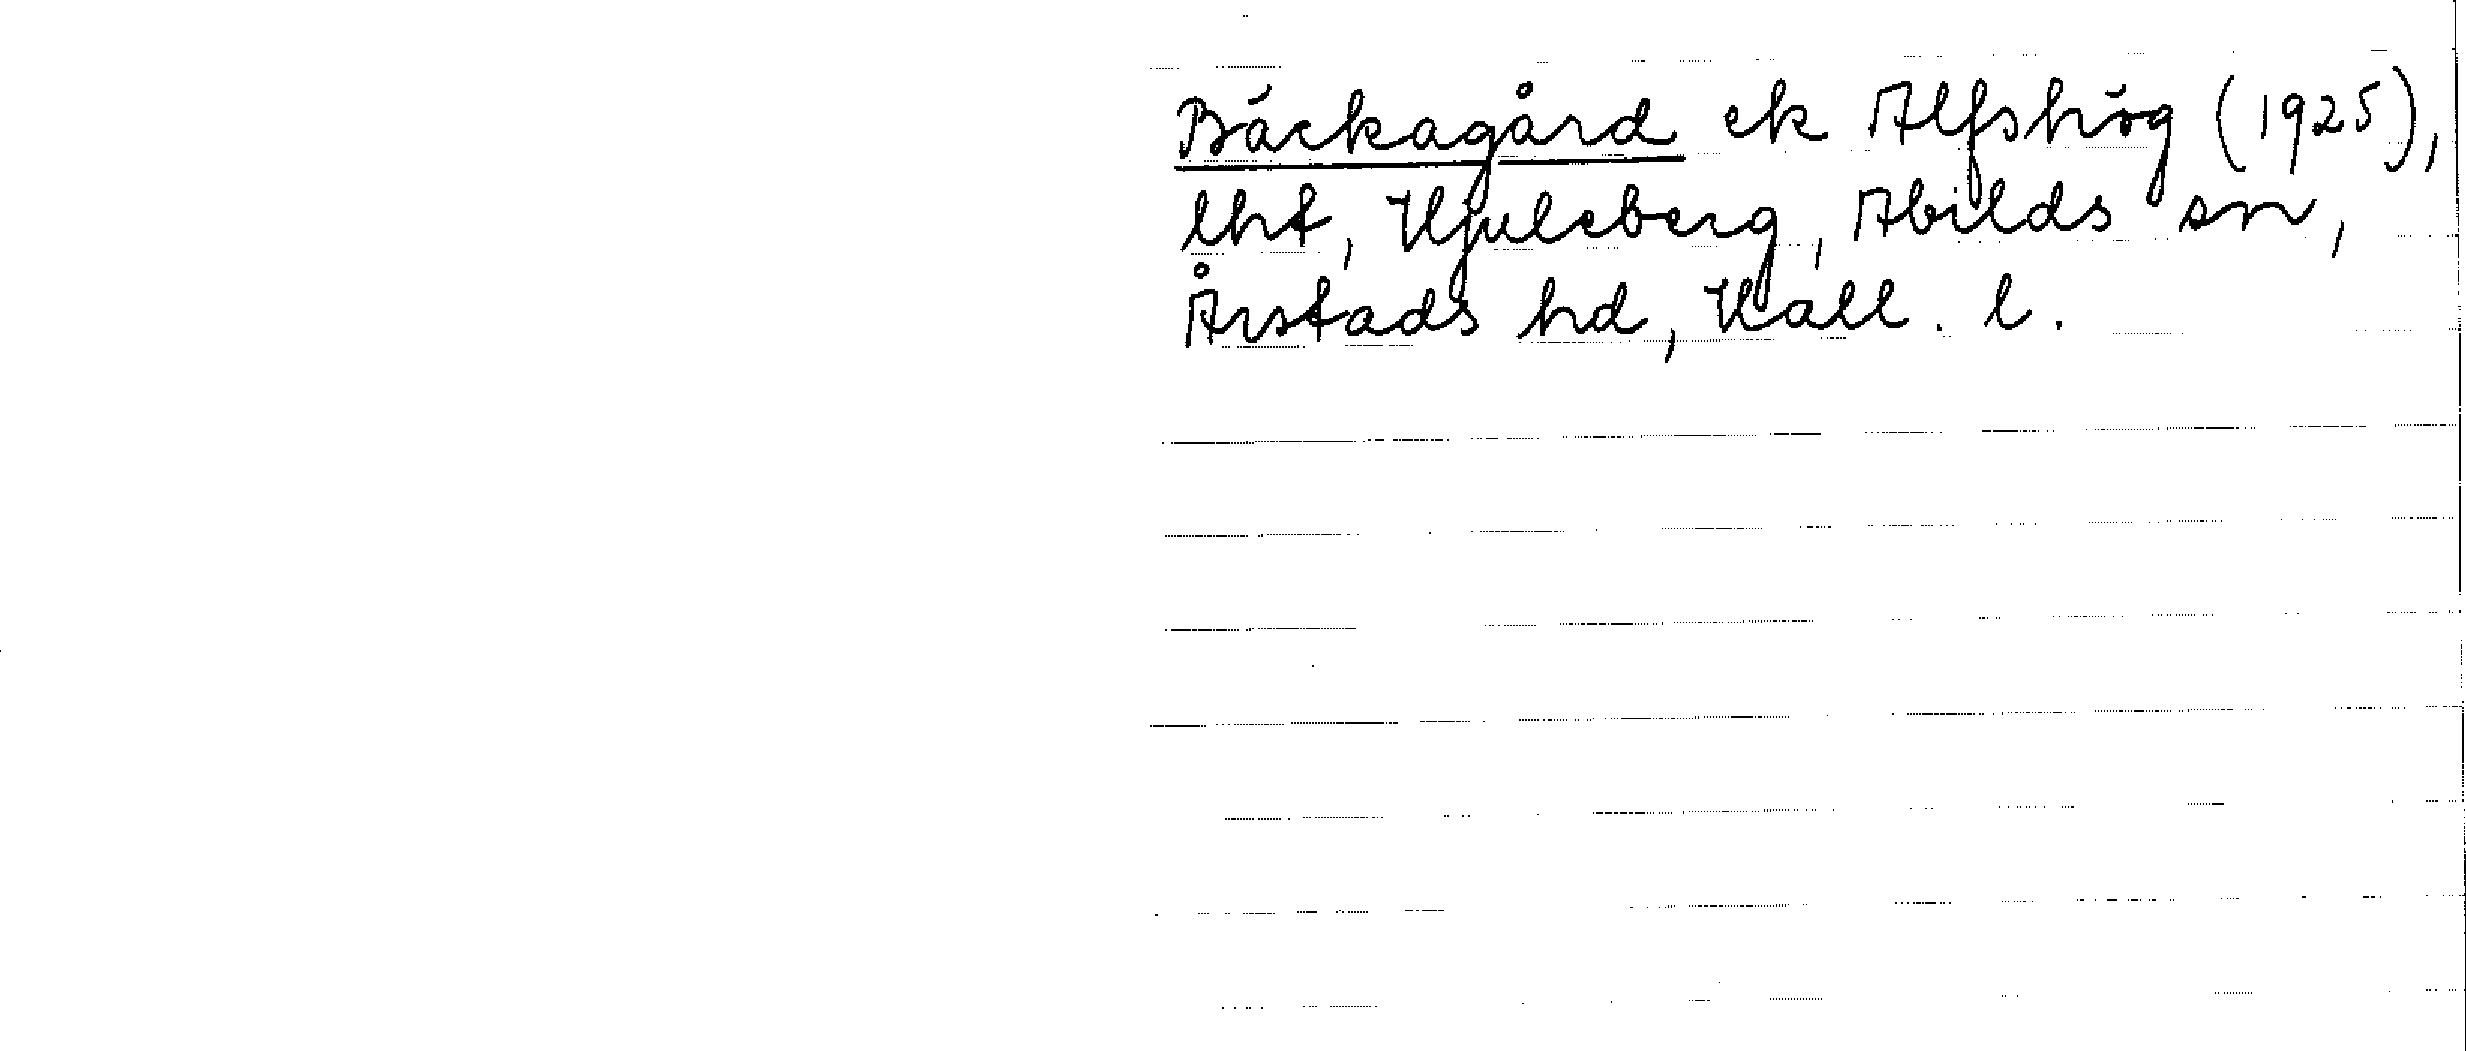 Bäckagård ek Alfshög (1925),
lht, Hjuleberg, Abilds sn,
Årstads hd, Hall. l.